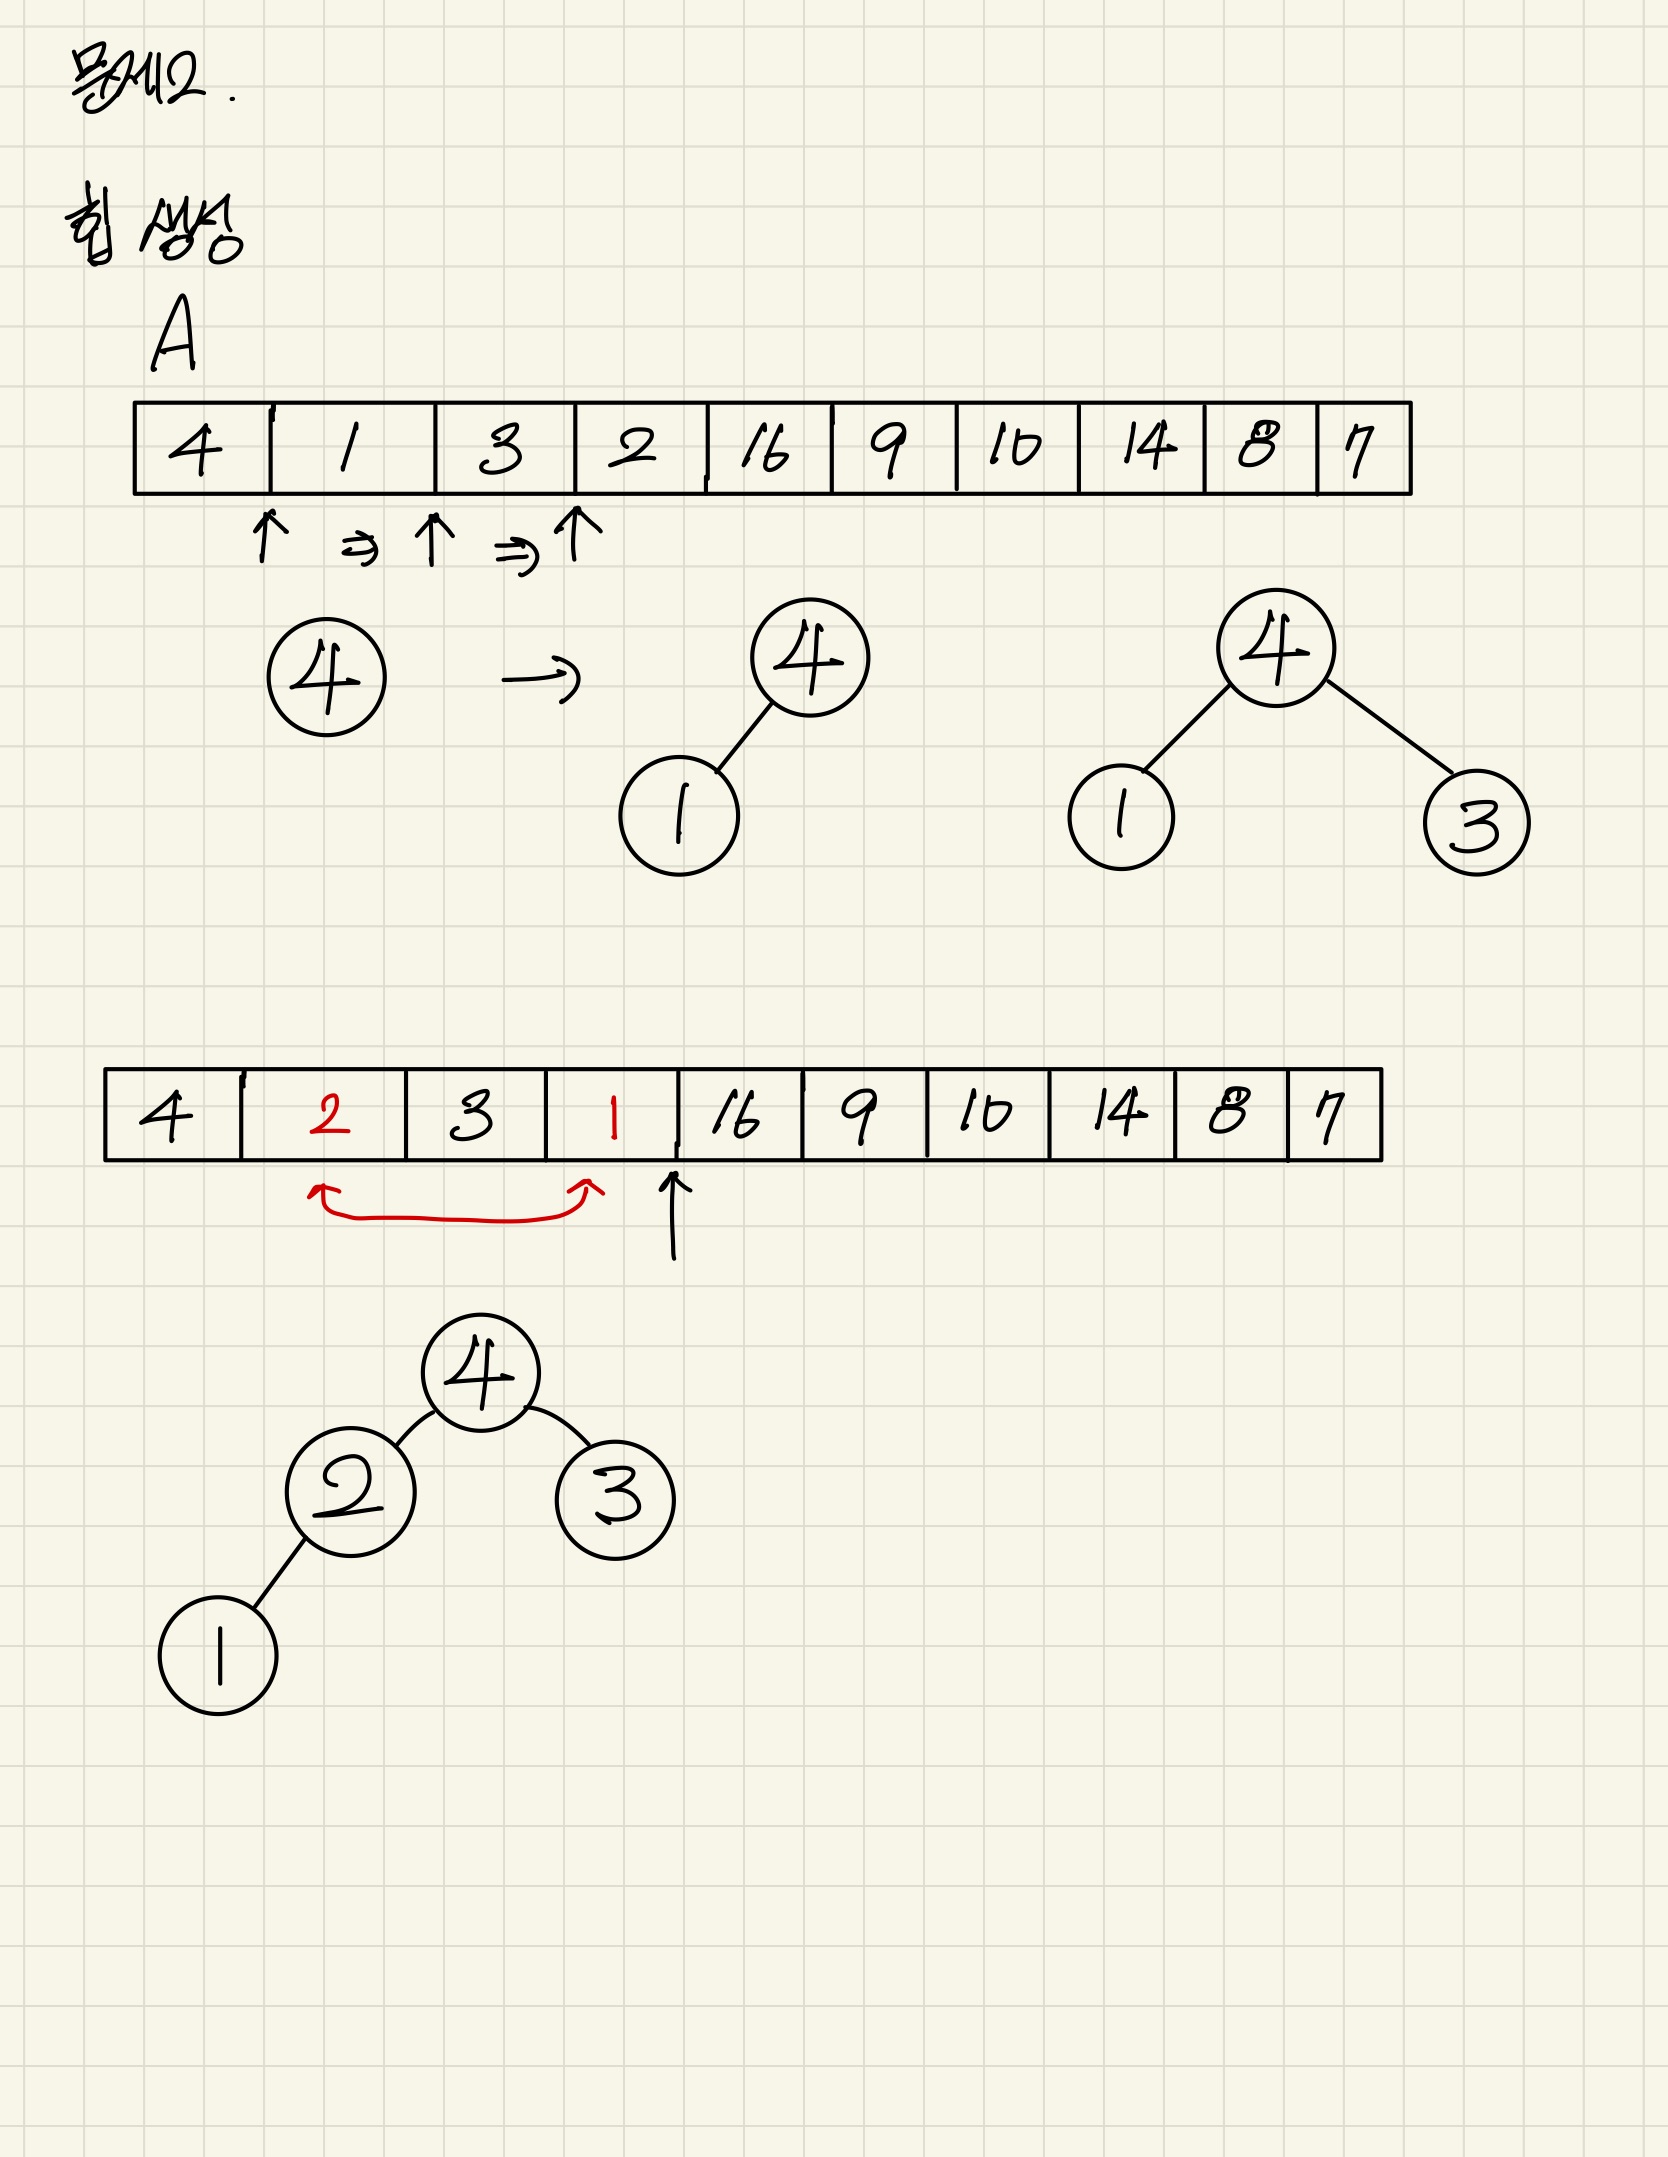 문제2.
힙 생성
A
4 1 3 2 16 9 10 14 8 7
↑ ⇒ ↑ ⇒ ↑
4 → 4 4
1 1 3
4 2 3 1 16 9 10 14 8 7
↑
4
2 3
1